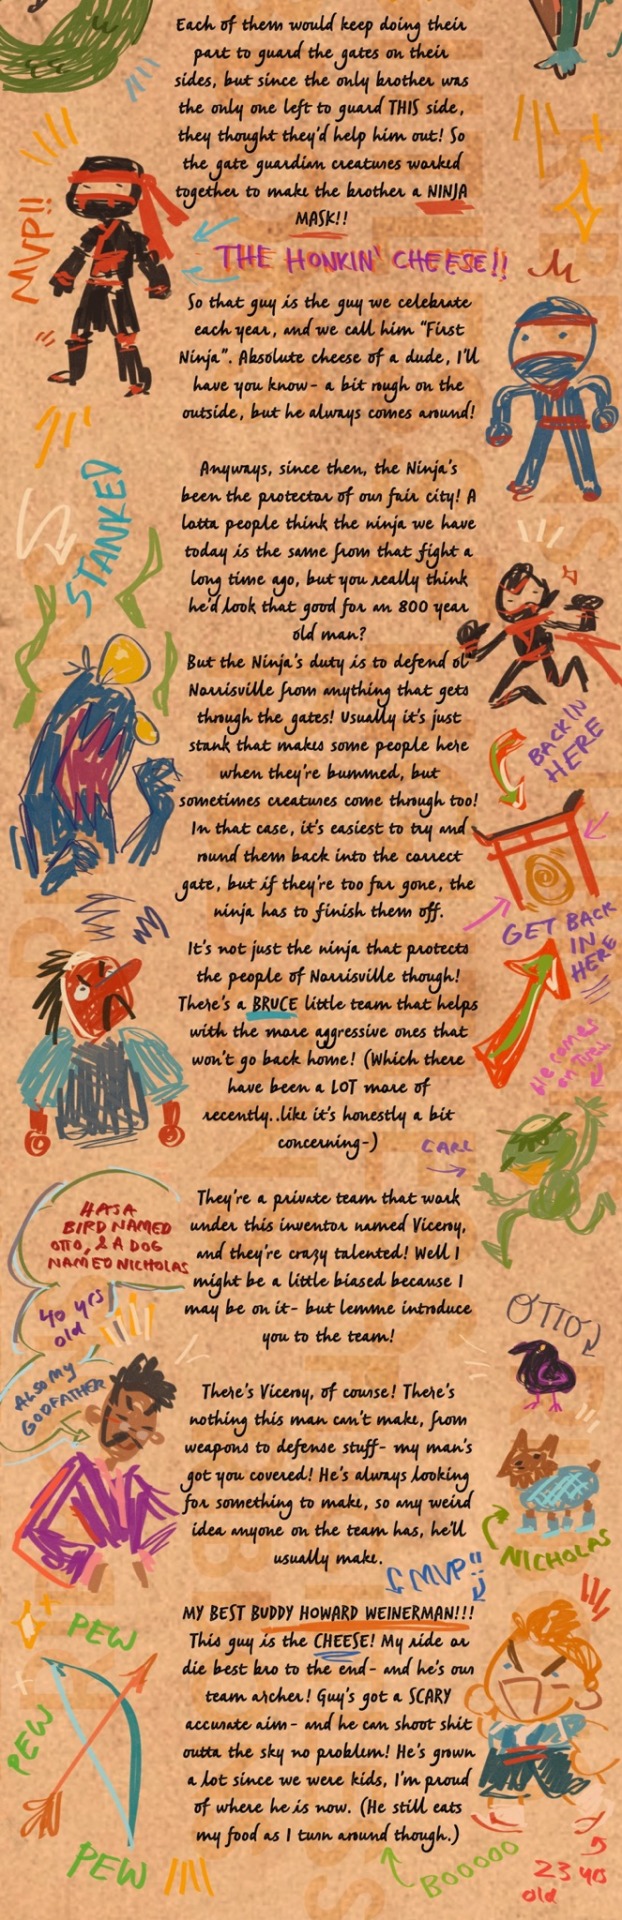 Each of them would keep doing their
part to guard the gates on their
sides, but since the only brother was
the only one left to guard THIS side,
they thought they'd help him out! So
the gate guardian creatures worked
together to make the brother a NINJA
MASK!!
MVP!!
THE HONKIN' CHEESE!!
So that guy is the guy we celebrate
each year, and we call him "First
Ninja". Absolute cheese of a dude, I'll
have you know- a bit rough on the
outside, but he always comes around!
STANKED
Anyways, since then, the Ninja's
been the protector of our fair city! A
lotta people think the ninja we have
today is the same from that fight a
long time ago, but you really think
he'd look that good for an 800 year
old man?
But the Ninja's duty is to defend ol'
Norrisville from anything that gets
through the gates! Usually it's just
stank that makes some people here
when they're bummed, but
sometimes creatures come through too!
In that case, it's easiest to try and
round them back into the correct
gate, but if they're too far gone, the
ninja has to finish them off.
BACK IN
HERE
GET BACK
IN
HERE
It's not just the ninja that protects
the people of Norrisville though!
There's a BRUCE little team that helps
with the more aggressive ones that
won't go back home! (Which there
have been a LOT more of
recently..like it's honestly a bit
concerning-)
He comes
on Tues
CARL
They're a private team that work
under this inventor named Viceroy,
and they're crazy talented! Well I
might be a little biased because I
may be on it- but lemme introduce
you to the team!
HAS A
BIRD NAMED
OTTO, & A DOG
NAMED NICHOLAS
40 yrs
old
ALSO MY
GODFATHER
OTTO
There's Viceroy, of course! There's
nothing this man can't make, from
weapons to defense stuff- my man's
got you covered! He's always looking
for something to make, so any weird
idea anyone on the team has, he'll
usually make.
NICHOLAS
MVP!!
MY BEST BUDDY HOWARD WEINERMAN!!!
This guy is the CHEESE! My ride or
die best bro to the end- and he's our
team archer! Guy's got a SCARY
accurate aim- and he can shoot shit
outta the sky no problem! He's grown
a lot since we were kids, I'm proud
of where he is now. (He still eats
my food as I turn around though.)
PEW
PEW
PEW
BOOOOO
23 yrs
old